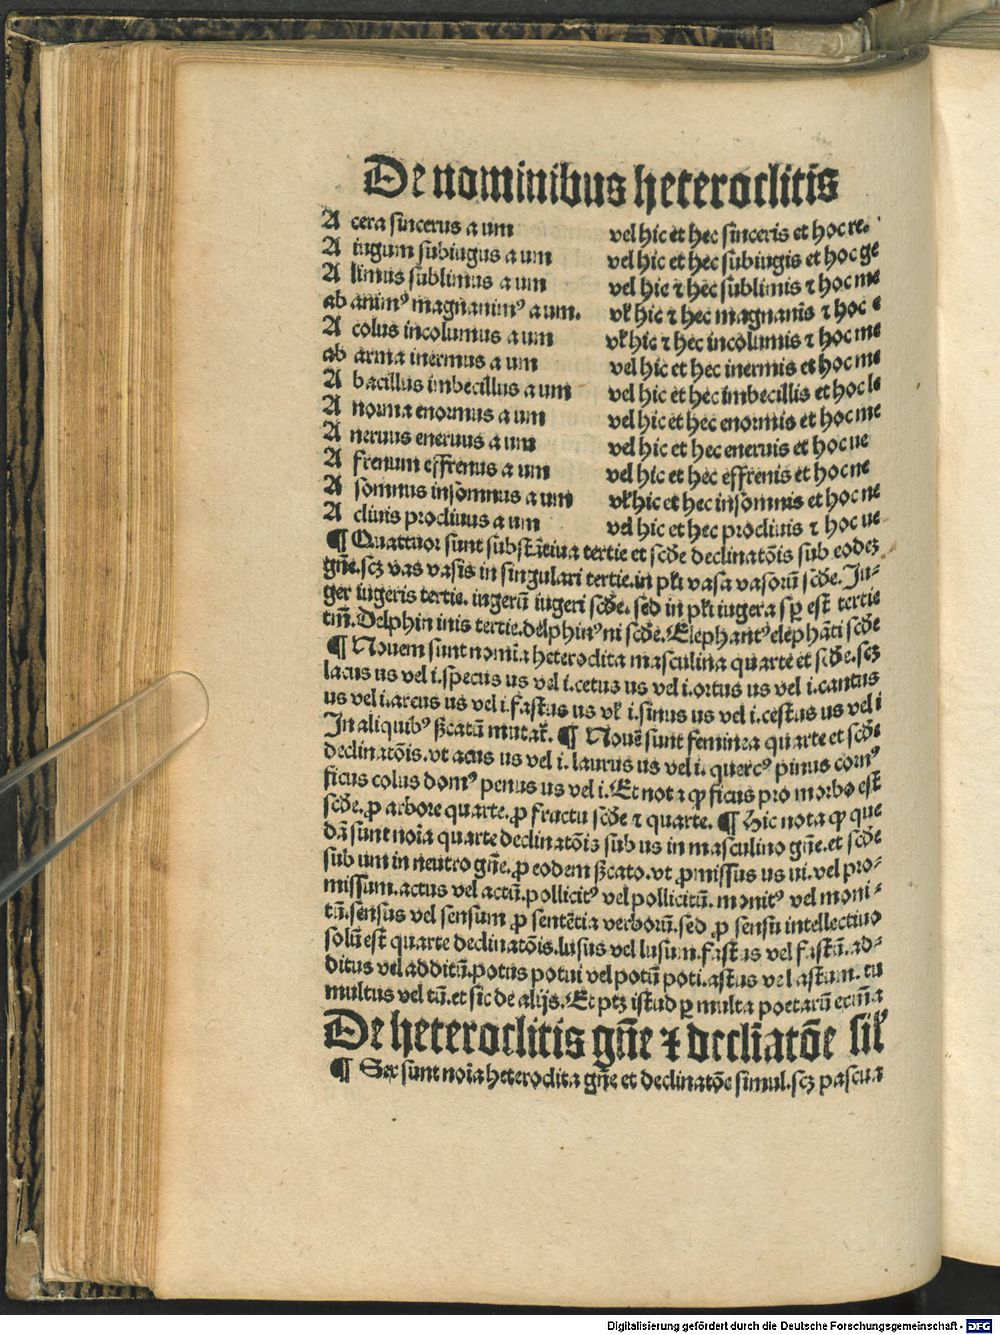 De nominibus heteroclitis
A cera sincerus a um vel hic et hec sinceris et hoc re.
A iugum subiugus a um vel hic et hec subiugis et hoc ge
A limus sublimus a um vel hic ⁊ hec sublimis ⁊ hoc me
ab animꝰ magnanimꝰ a um. vł hic ⁊ hec magnanis ⁊ hoc e
A colus incolumus a um vł hic ⁊ hec incolumis ⁊ hoc me
ab arma inermus a um vel hic et hec inermis et hoc me
A bacillus imbecillus a um vel hic et hec imbecillis et hoc le
A norma enormus a um vel hic et hec enormis et hoc me
A neruus eneruus a um vel hic et hec eneruis et hoc ue
A frenum effrenus a um vel hic et hec effrenis et hoc ne
A somnus insomnus a um vł hic et hec insomnis et hoc ne
A cliuis procliuus a um vel hic et hec procliuis ⁊ hoc ue
¶ Quattuor sunt substātiua tertie et scđe declinatōis sub eodeꝫ
gñe.scꝫ vas vasis in singulari tertie.in płi vasa vasorū scđe. Iu-
ger iugeris tertie. iugerū iugeri scđe. sed in płi iugera sꝑ est tertie
tm̄. Delphin inis tertie.delphinꝰ ni scđe. Elephantꝰ elephāti scđe
¶ Nouem sunt nomīa heteroclita masculina quarte et scđe.scꝫ
lacus us vel i.specus us vel i.cetus us vel i.ortus us vel i.cantus
us vel i.arcus us vel i.fastus us vł i.sinus us vel i.cestus us vel i
In aliquibꝰ ß̄catū mutat̄. ¶ Nouē sunt feminea quarte et scđe
declinatōis.vt acus us vel i. laurus us vel i. quercꝰ pinus cornꝰ
ficus colus domꝰ penus us vel i. Et nota ꝙ ficus pro morbo est
scđe.ꝓ arbore quarte.ꝓ fructu scđe ⁊ quarte. ¶ Hic nota ꝙ que
dā sunt noīa quarte declinatōis sub us in masculino gñe.et scđe
sub um in neutro gñe.ꝓ eodem ß̄cato.vt ꝓmissus us ui.vel pro-
missum.actus vel actū.pollicitꝰ vel pollicitū. monitꝰ vel moni-
tū.sensus vel sensum ꝓ sentētia verborū.sed ꝓ sensu intellectiuo
solū est quarte declinatōis.lusus vel lusum.fastus vel fastū.ad-
ditus vel additū.potus potui vel potū poti.astus vel astum. tu
multus vel tū.et sic de alijs. Et ptꝫ istud ꝑ multa poetarū carmīa
De heteroclitis gñe ⁊ decl̄īatōe sił
¶ Sex sunt noīa heteroclita gñe et declinatōe simul.scꝫ pascua
Digitalisierung gefördert durch die Deutsche Forschungsgemeinschaft - DFG